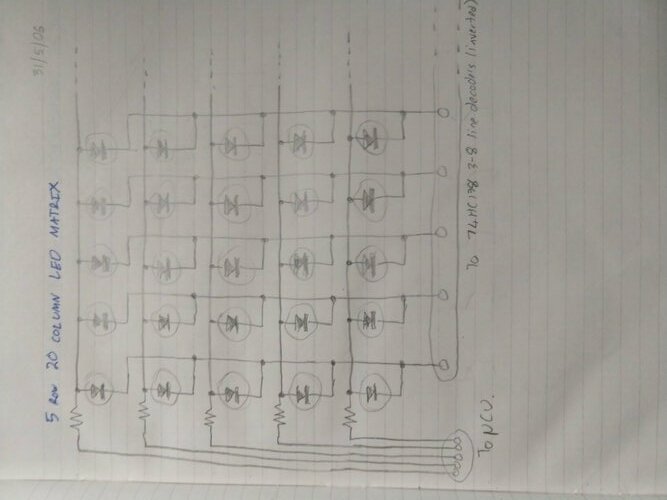 31/5/06
5 ROW 20 COLUMN LED MATRIX
To 74HC138 3-8 line decoders (inverted)
To MCU.